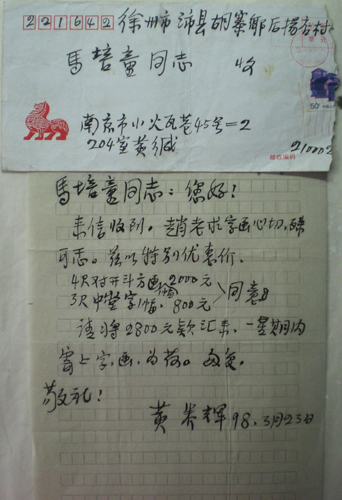 221642
徐州市沛县胡寨乡后杨存村
馬培童同志 收
50
南京市小火瓦巷45号=2
204室黄缄
邮政编码
210002
馬培童同志：您好！
来信收到。趙老求字画心切，
可志。兹以特别优惠价。
4尺对开斗方画2000元
3尺中堂字1幅，800元
同意
请将2800元款汇来，一星期内
寄上字、画，为荷。
敬礼！
黄养辉 98.3月23日